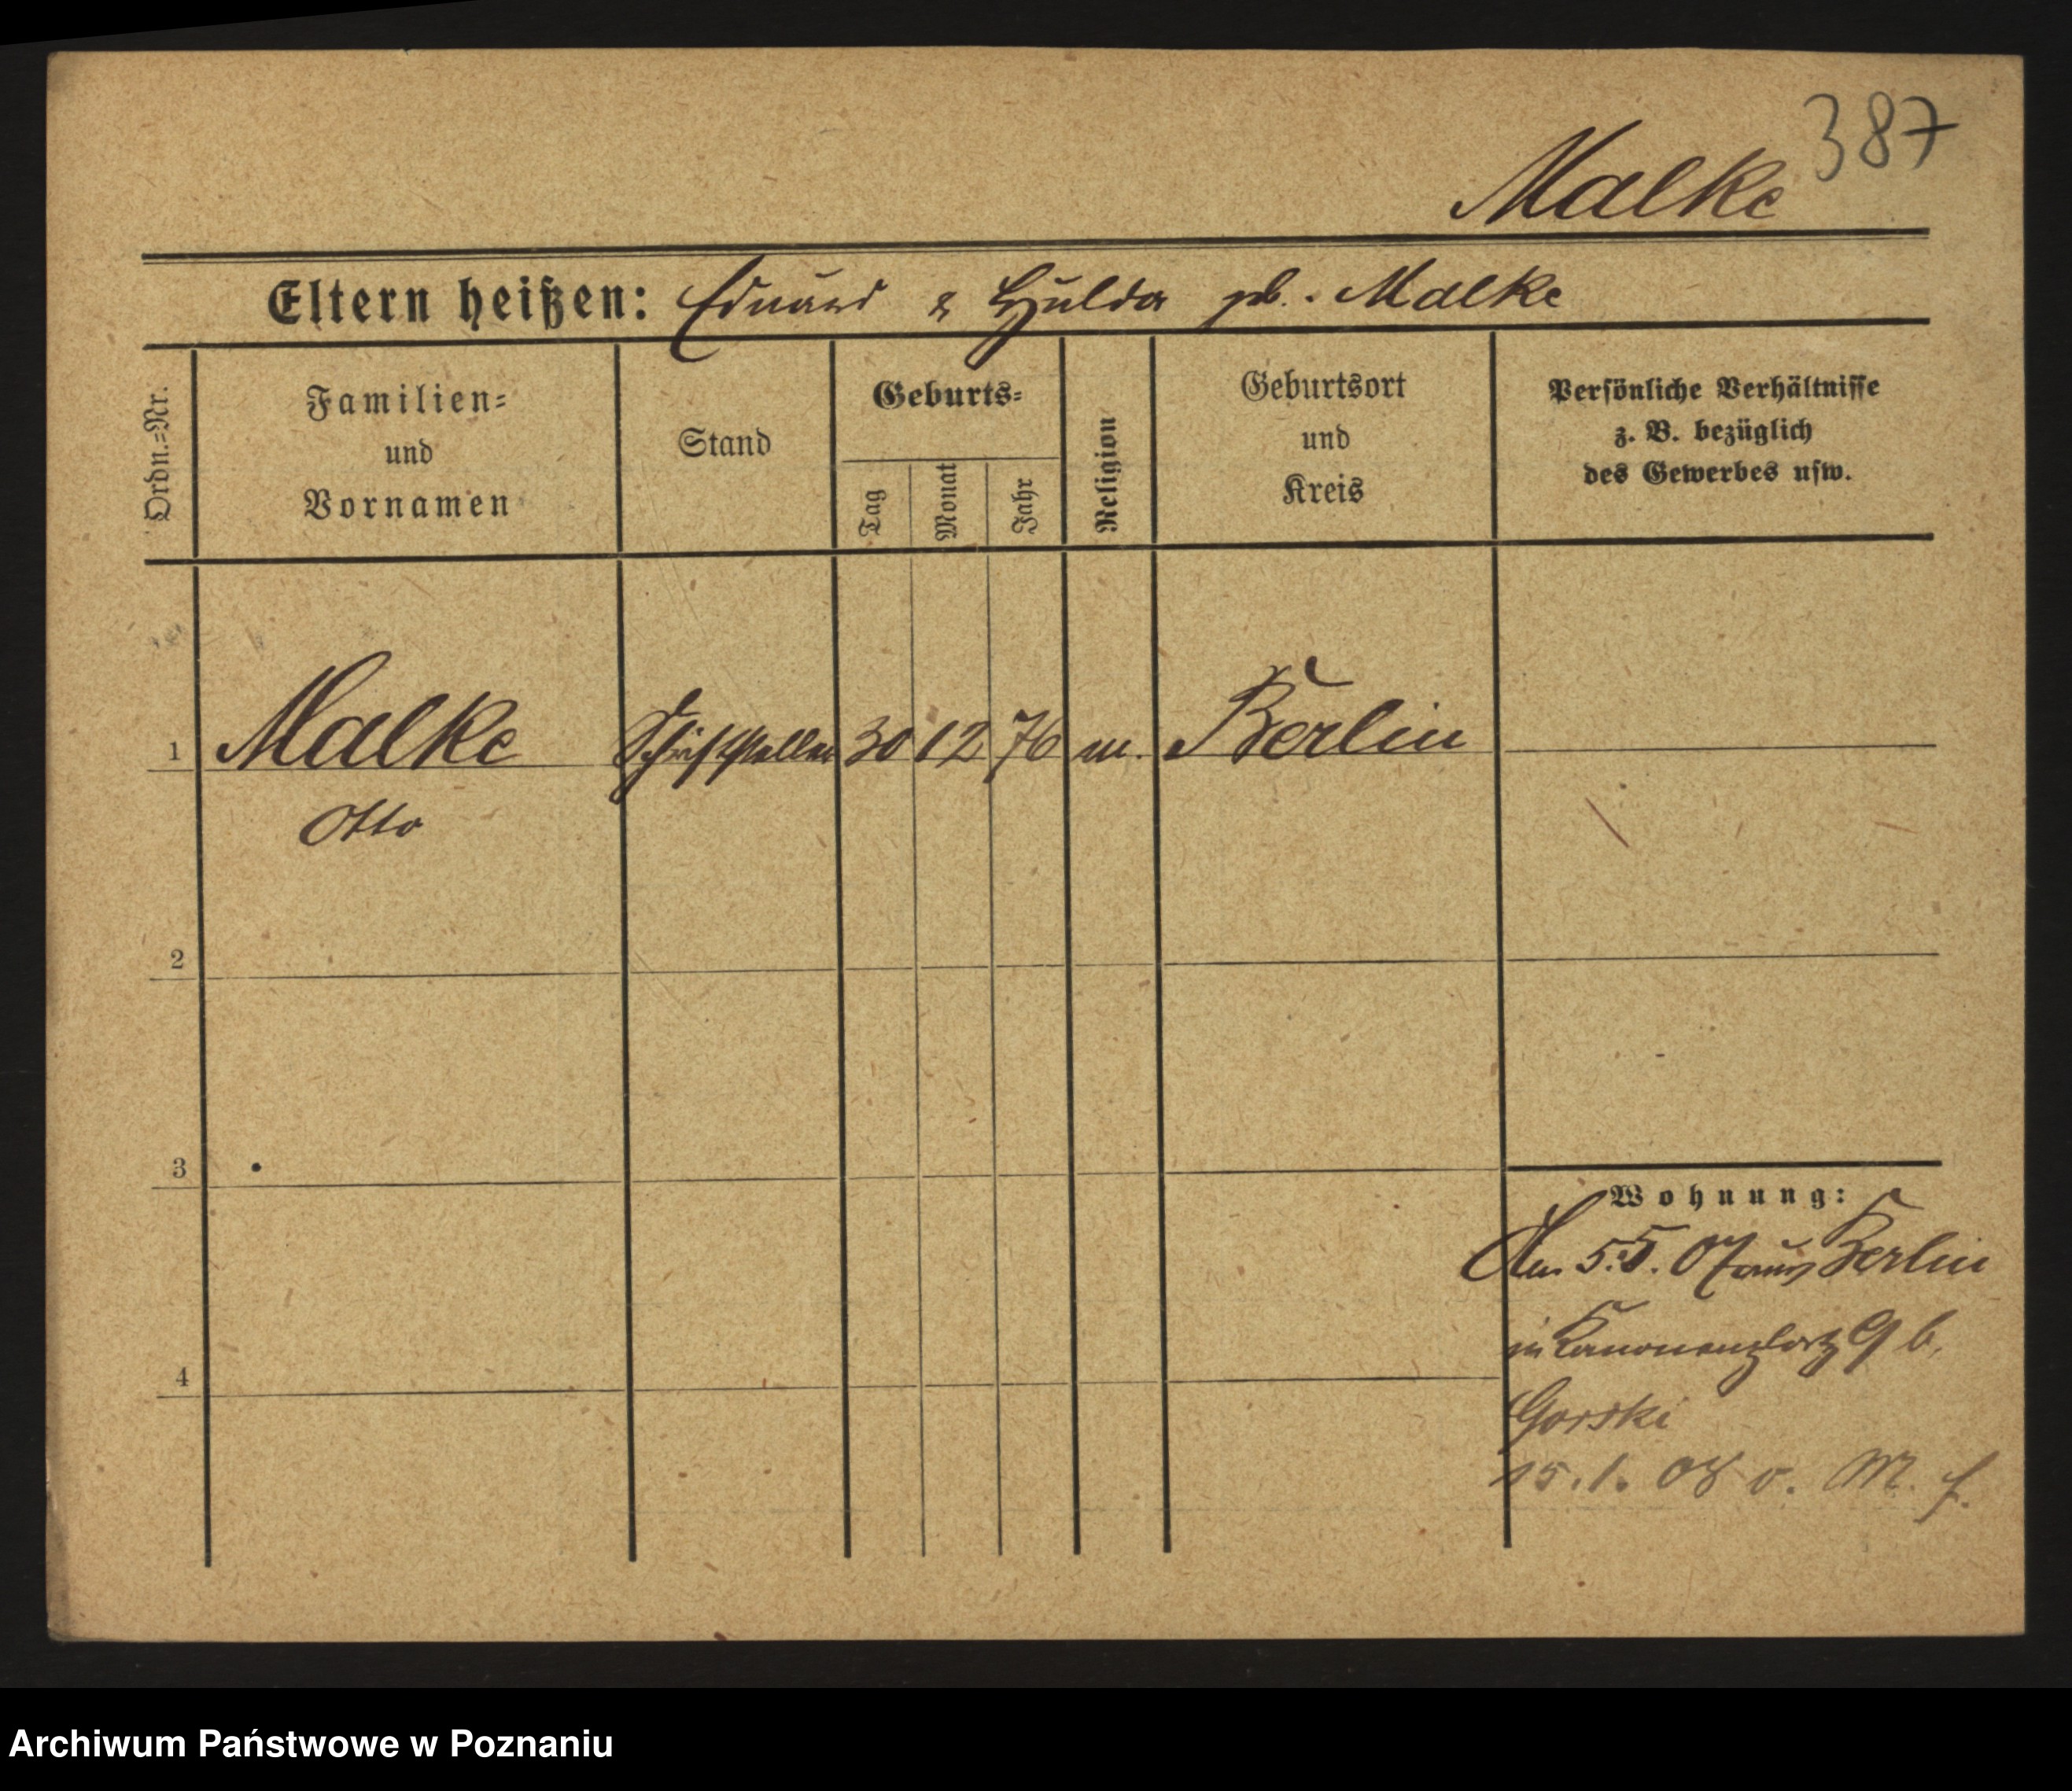 387
Malke
Eltern heißen: Eduard & Hulda geb. Malke
Ordn.=Nr.
Familien=
und
Vornamen
Stand
Geburts=
Tag
Monat
Jahr
Religion
Geburtsort
und
Kreis
Persönliche Verhältnisse
z. B. bezüglich
des Gewerbes usw.
1 Malke Schriftsteller 30 12 76 m. Berlin
Otto
2
3
4
Wohnung:
5.5.07 aus Berlin
in Kanonenplatz 9 b.
Gorski
15.1.08 v. M. f.
Archiwum Państwowe w Poznaniu